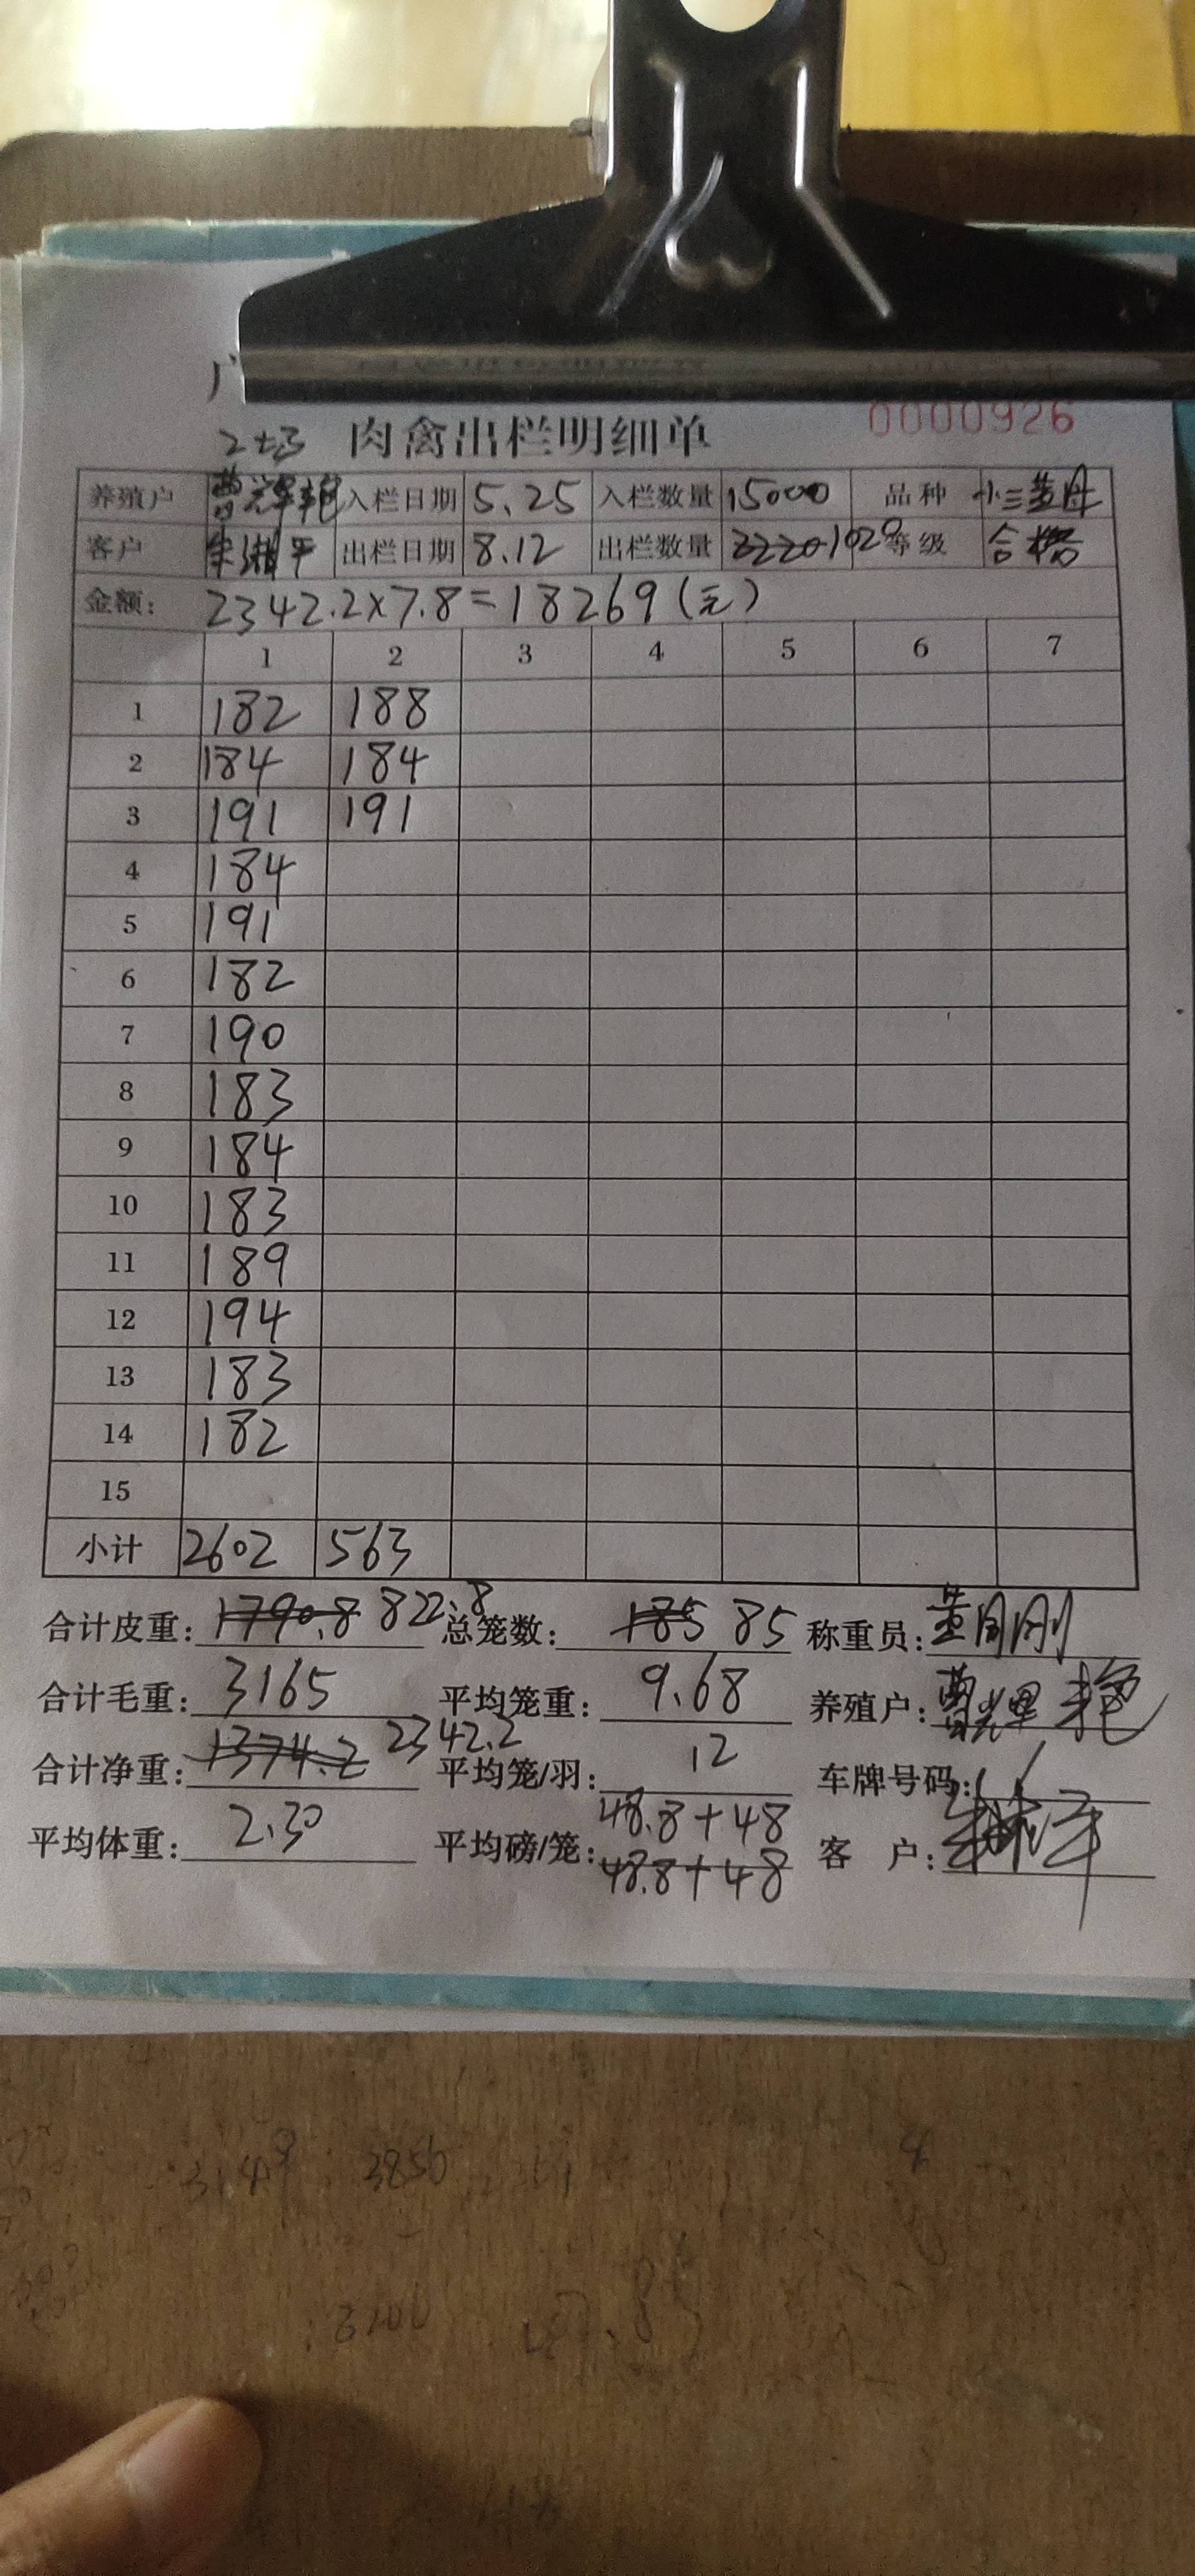 0000926
2±3 肉禽出栏明细单
养殖户 曹辉艳 入栏日期 5.25 入栏数量 15000 品种 小三黄母
客户 朱湘平 出栏日期 8.12 出栏数量 2220 1020 等级 合格
金额: 2342.2×7.8=18269(元)
1 2 3 4 5 6 7
1 182 188
2 184 184
3 191 191
4 184
5 191
6 182
7 190
8 183
9 184
10 183
11 189
12 194
13 183
14 182
15
小计 2602 563
合计皮重: 1790.8 822.8 总笼数: 185 85 称重员: 黄刚
合计毛重: 3165 平均笼重: 9.68 养殖户: 曹辉艳
合计净重: 1374.2 2342.2 平均笼/羽: 12 车牌号码:
平均体重: 2.30 平均磅/笼: 48.8+48 客 户:
48.8+48